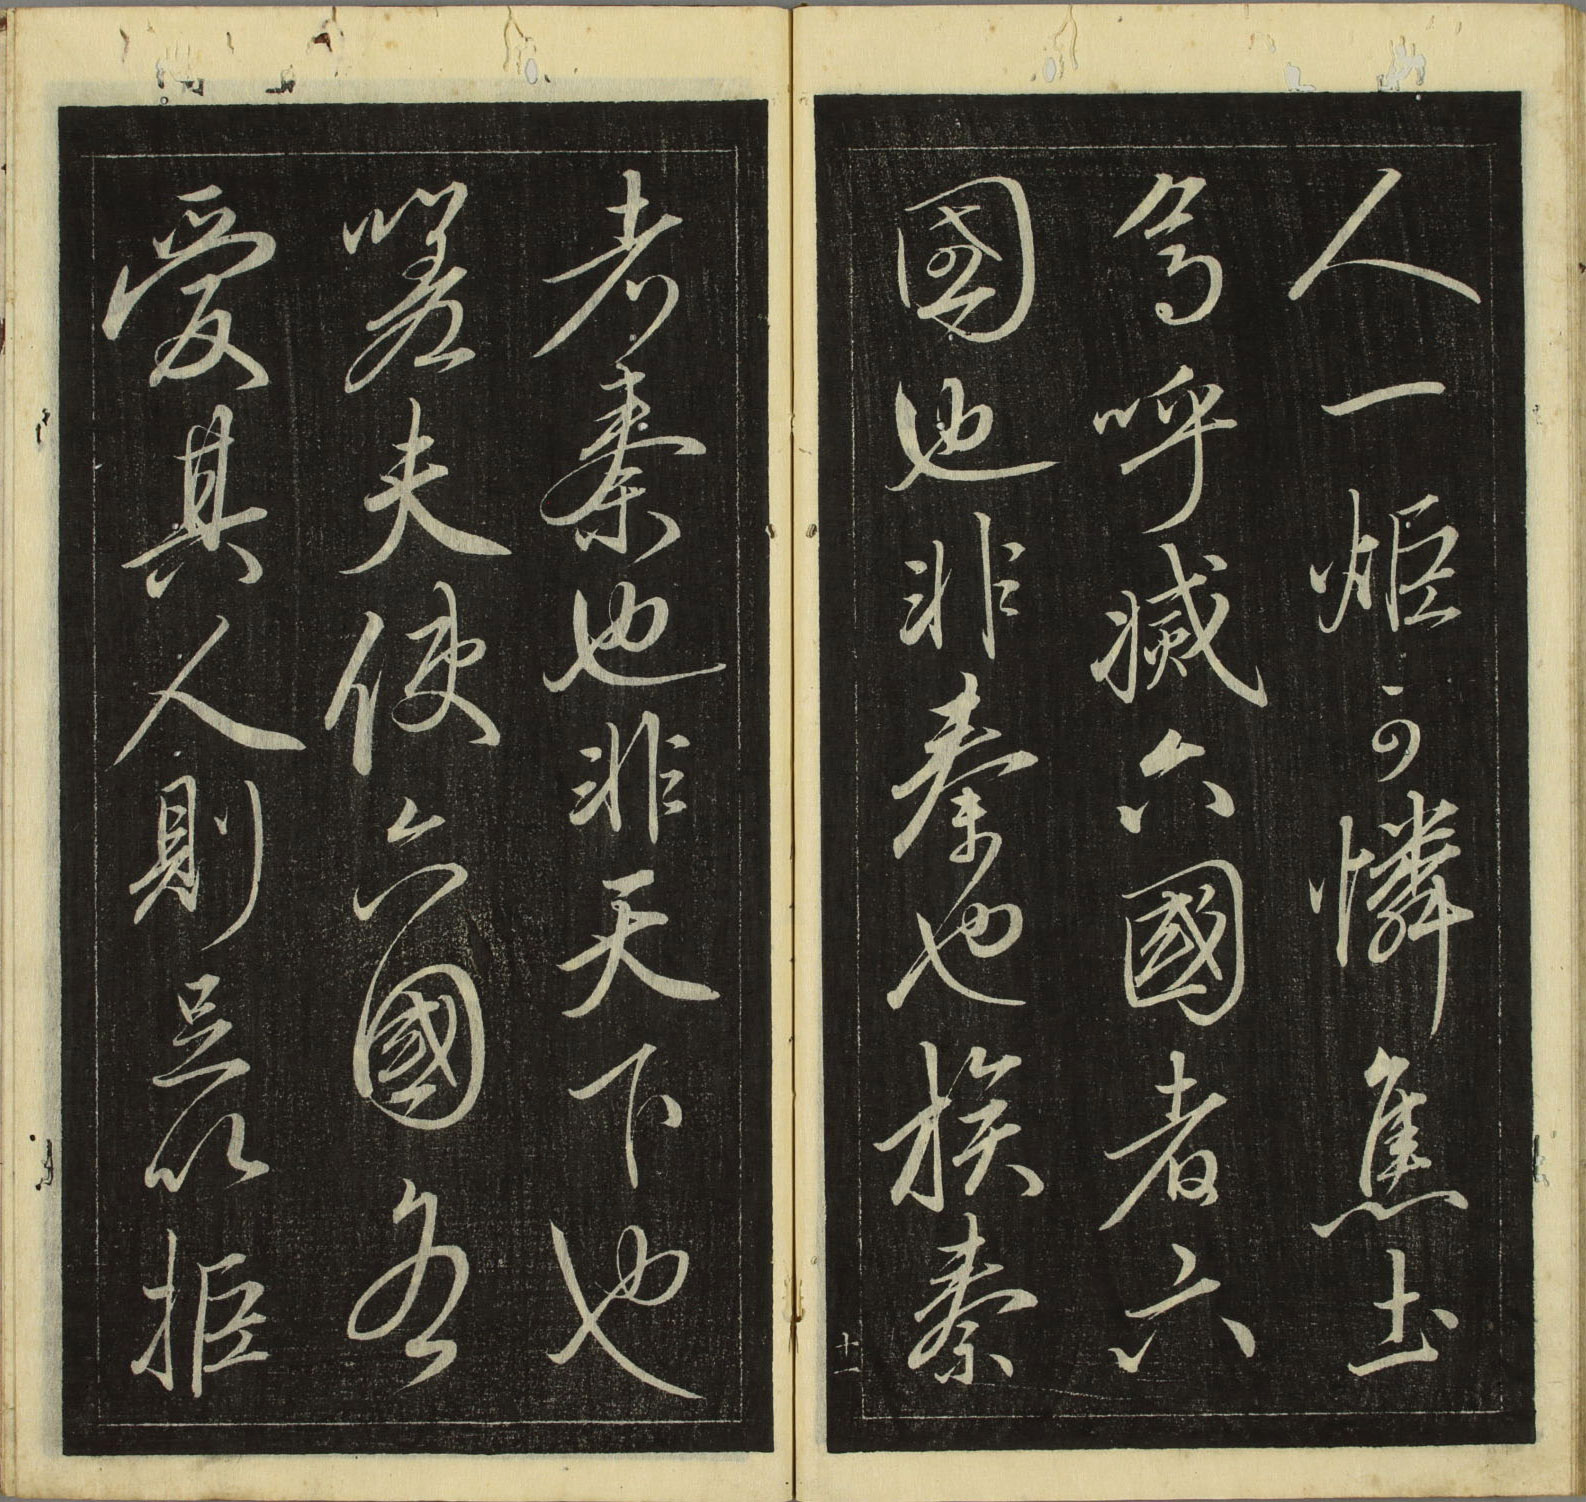 人一炬可憐焦土
烏呼滅六國者六
國也非秦也族秦
十一
者秦也非天下也
嗟夫使六國各
愛其人則足以拒